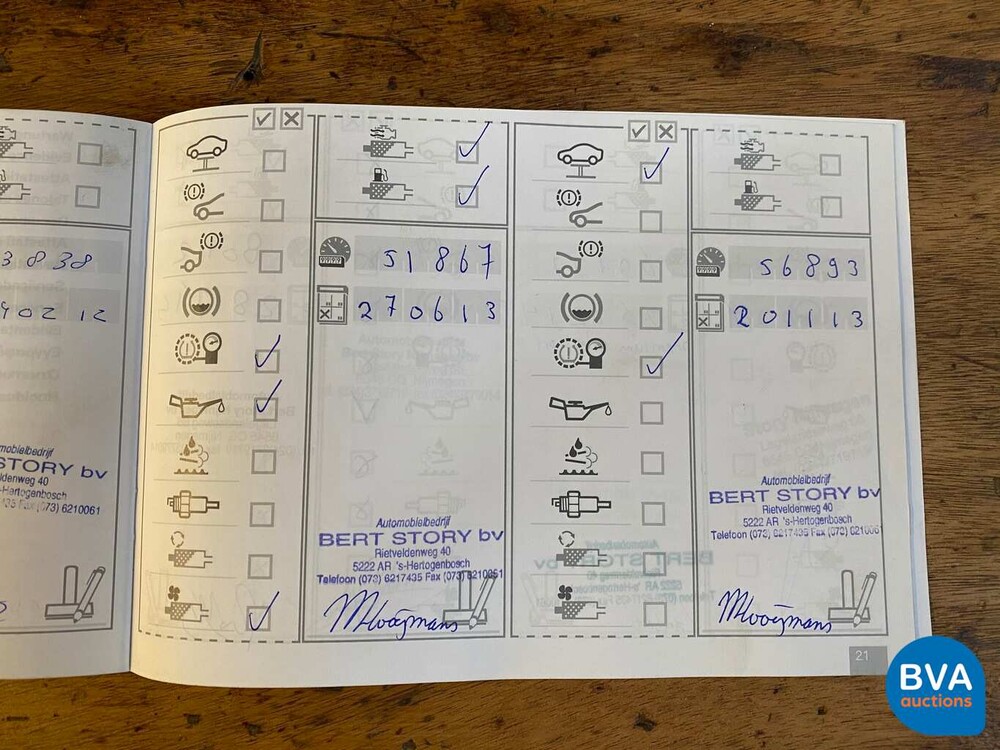 3838
40212
mobielbedrijf
STORY bv
ldenweg 40
-Hertogenbosch
435 Fax (073) 6210061
51867
270613
Automobielbedrijf
BERT STORY bv
Rietveldenweg 40
5222 AR 's-Hertogenbosch
Telefoon (073) 6217435 Fax (073) 6210061
MLooijmans
56893
201113
Automobielbedrijf
BERT STORY bv
Rietveldenweg 40
5222 AR 's-Hertogenbosch
Telefoon (073) 6217435 Fax (073) 621006
MLooijmans
21
BVA
auctions